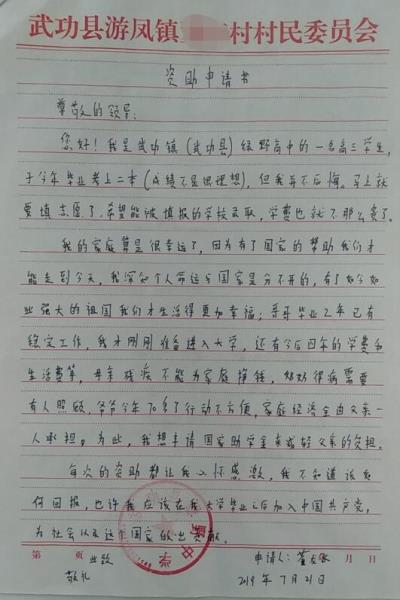 武功县游凤镇 村村民委员会
资助申请书
尊敬的领导:
您好!我是武功镇(武功县)绿野高中的一名高三学生,
于今年毕业考上二本(成绩不是很理想),但我并不后悔。马上就
要填志愿了,希望能被填报的学校录取,学费也就不那么贵了。
我的家庭算是很幸运了,因为有了国家的帮助我们才
能走到今天,我深知个人命运与国家是分不开的,有了如今如
此强大的祖国我们才生活得更加幸福;哥哥毕业乙年已有
稳定工作,我才刚刚准备进入大学,还有今后四年的学费和
生活费等,母亲残疾不能为家庭挣钱,奶奶得病需要
有人照顾,爷爷今年70多了行动不方便,家庭经济全由父亲一
人承担。为此,我想申请国家助学金来减轻父亲的负担。
每次的资助都让我心怀感激,我不知道该如
何回报,也许我应该在我大学毕业之后加入中国共产党,
为社会以及这个国家做出贡献。
第 页 此致 申请人: 董 月 日
敬礼 2019年7月21日
中学